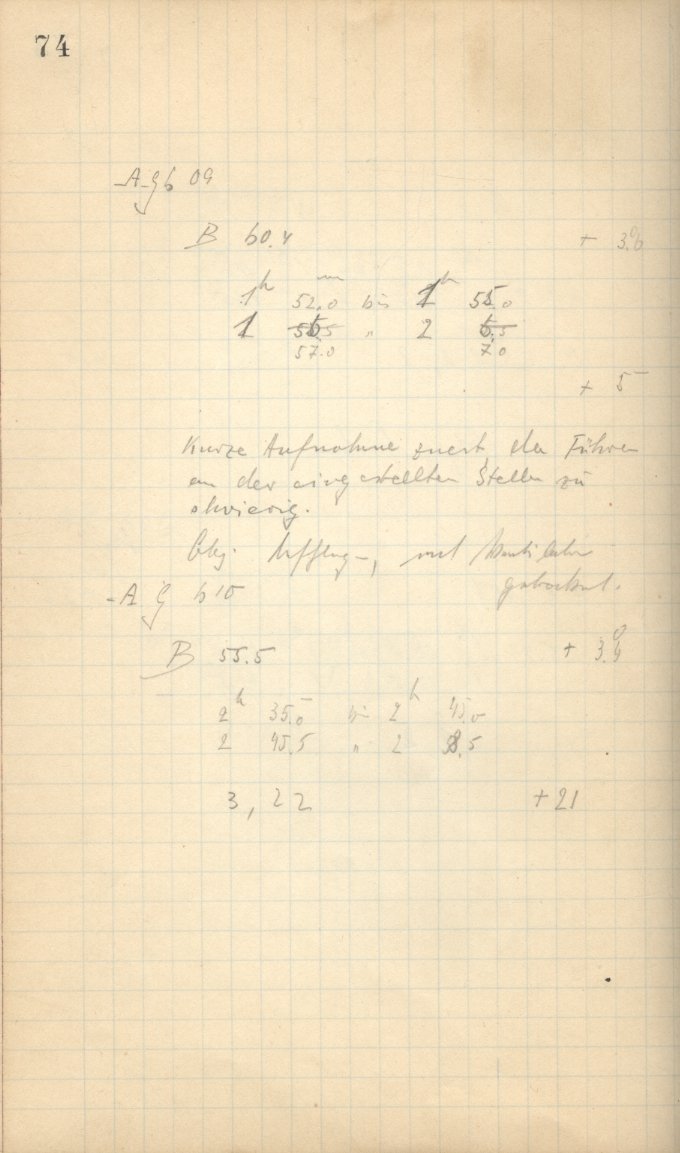 74
A G 609
B 60.4 + 3.6
1h 52.0m bis 1h 55.0
1 57.0 " 2 7.0
+ 5
Kurze Aufnahme zuerst, da Führen
an der eingestellten Stelle zu
schwierig.
mit
A G 610
B 55.5 + 3.4
2h 35.0 bis 2h 45.0
2 45.5 " 2
3,22 +21